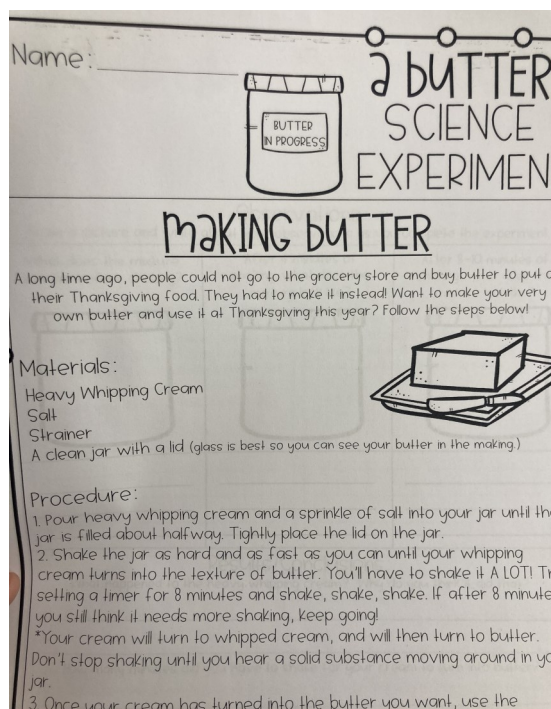 Name:
BUTTER
IN PROGRESS
a butter
SCIENCE
EXPERIMEN
Making Butter
A long time ago, people could not go to the grocery store and buy butter to put
their Thanksgiving food. They had to make it instead! Want to make your very
own butter and use it at Thanksgiving this year? Follow the steps below!
Materials:
Heavy Whipping Cream
Salt
Strainer
A clean jar with a lid (glass is best so you can see your butter in the making.)
Procedure:
1. Pour heavy whipping cream and a sprinkle of salt into your jar until th
jar is filled about halfway. Tightly place the lid on the jar.
2. Shake the jar as hard and as fast as you can until your whipping
cream turns into the texture of butter. You'll have to shake it A LOT! Tr
setting a timer for 8 minutes and shake, shake, shake. If after 8 minute
you still think it needs more shaking, keep going!
*Your cream will turn to whipped cream, and will then turn to butter.
Don't stop shaking until you hear a solid substance moving around in yo
jar.
3. Once your cream has turned into the butter you want, use the